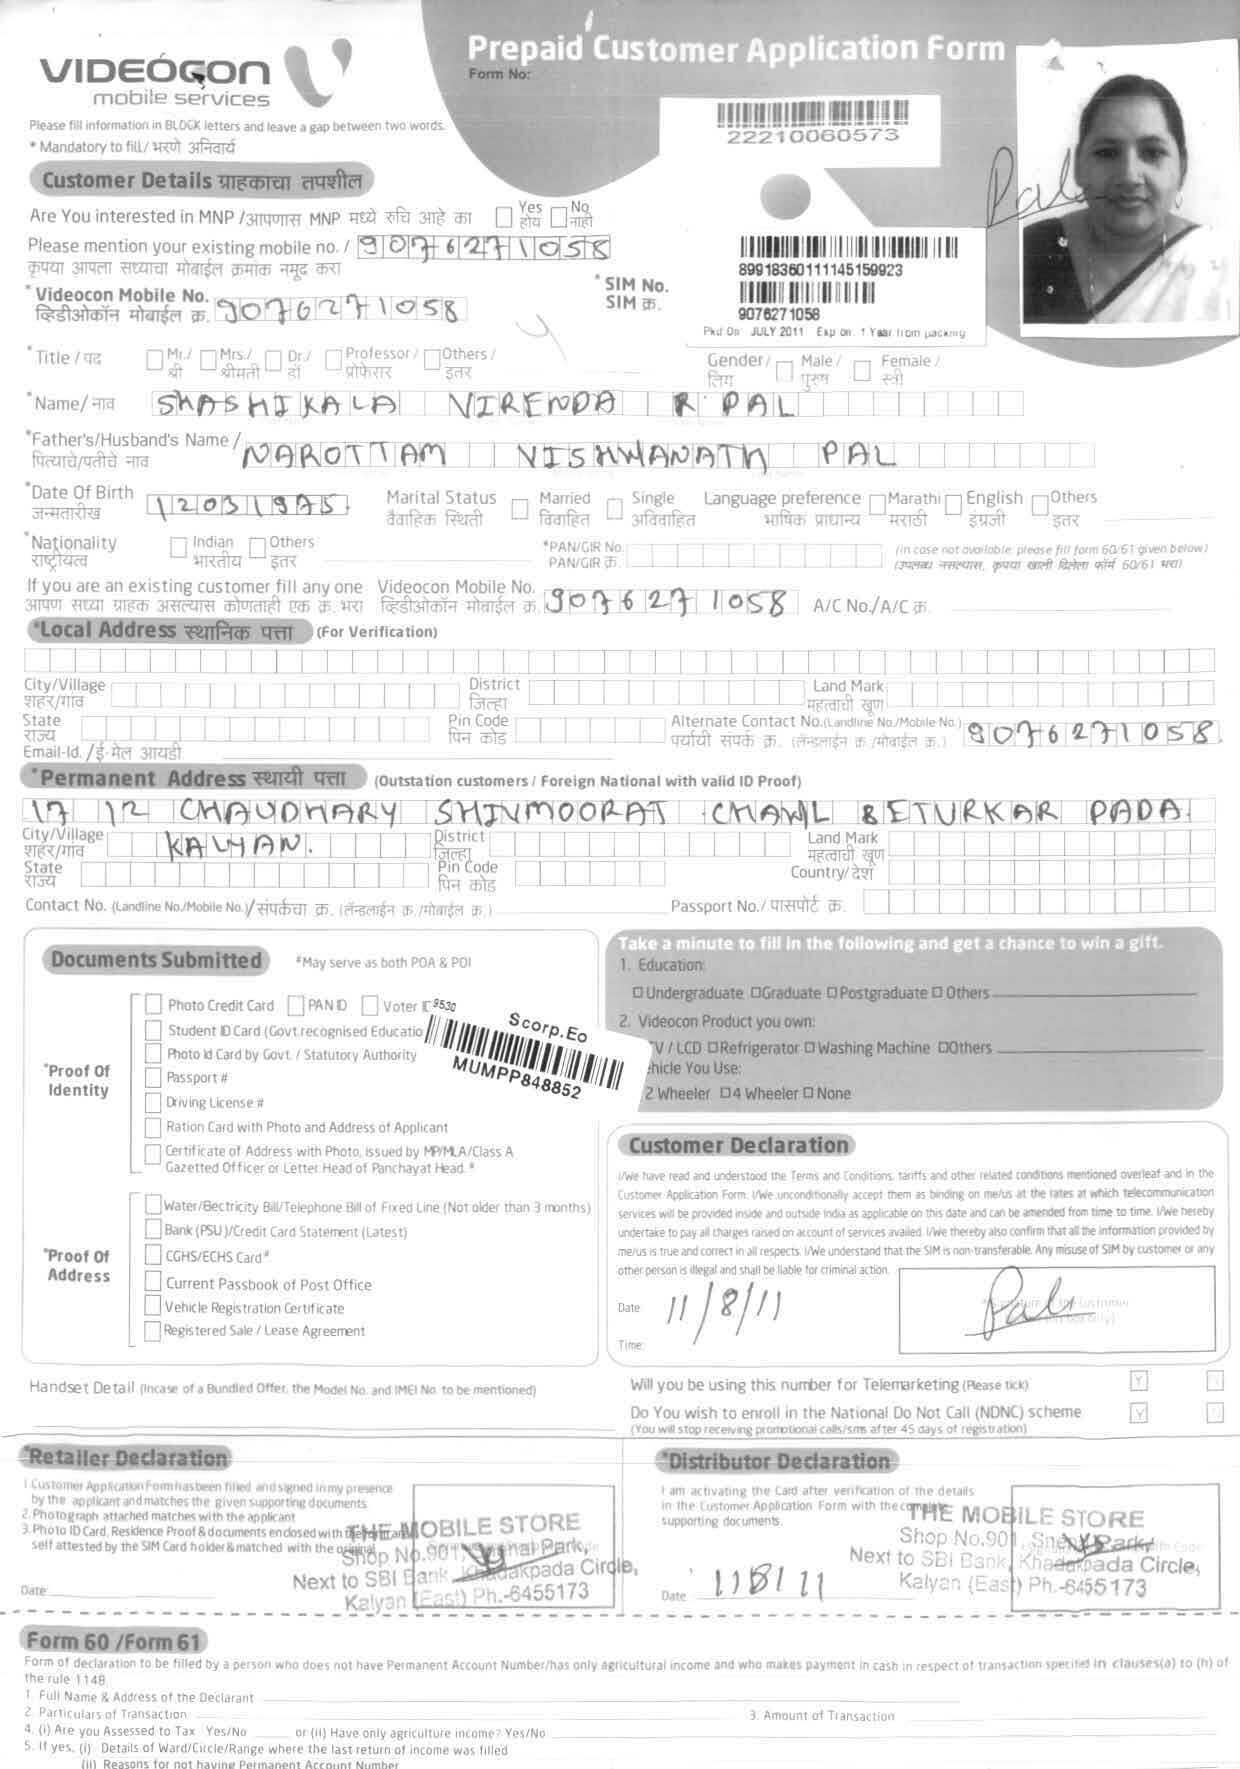 VIDEOCON
mobile services
Prepaid Customer Application Form
Form No:
22210060573
Please fill information in BLOCK letters and leave a gap between two words.
* Mandatory to fill/ भरणे अनिवार्य
Customer Details ग्राहकाचा तपशील
Pal
Are You interested in MNP /आपणास MNP मध्ये रुचि आहे का Yes होय No नाही
Please mention your existing mobile no. / 9076271058
कृपया आपला सध्याचा मोबाईल क्रमांक नमूद करा
89918360111145159923
* SIM No.
SIM क्र.
9076271058
Pkd On JULY 2011 Exp on 1 Year from packing
* Videocon Mobile No.
व्हिडीओकॉन मोबाईल क्र. 9076271058
*Title / पद Mr./ श्री Mrs./ श्रीमती Dr./ डॉ Professor / प्रोफेसर Others / इतर Gender / लिंग Male / पुरुष Female / स्त्री
*Name/ नाव SHASHIKALA VIRENDA R PAL
*Father's/Husband's Name / NAROTTAM VISHWANATH PAL
पित्याचे/पतीचे नाव
*Date Of Birth 12031975 Marital Status Married Single Language preference Marathi English Others
जन्मतारीख वैवाहिक स्थिती विवाहित अविवाहित भाषिक प्राधान्य मराठी इंग्रजी इतर
*Nationality Indian Others *PAN/GIR No. (in case not available, please fill form 60/61 given below)
राष्ट्रीयत्व भारतीय इतर PAN/GIR क्र. (उपलब्ध नसल्यास, कृपया खाली दिलेला फॉर्म 60/61 भरा)
If you are an existing customer fill any one Videocon Mobile No.
आपण सध्या ग्राहक असल्यास कोणताही एक क्र. भरा व्हिडीओकॉन मोबाईल क्र. 9076271058 A/C No./A/C क्र.
*Local Address स्थानिक पत्ता (For Verification)
City/Village शहर/गांव District जिल्हा Land Mark महत्वाची खूण
State राज्य Pin Code पिन कोड Alternate Contact No.(Landline No./Mobile No.) 9076271058
पर्यायी संपर्क क्र. (लॅन्डलाईन क्र./मोबाईल क्र.)
Email-Id. /ई-मेल आयडी
*Permanent Address स्थायी पत्ता (Outstation customers / Foreign National with valid ID Proof)
17 12 CHAUDHARY SHIVMOORAT CHAWL BETURKAR PADA
City/Village शहर/गांव KALYAN. District जिल्हा Land Mark महत्वाची खूण
State राज्य Pin Code पिन कोड Country/ देश
Contact No. (Landline No./Mobile No.)/संपर्कचा क्र. (लॅन्डलाईन क्र./मोबाईल क्र.) Passport No./ पासपोर्ट क्र.
Documents Submitted #May serve as both POA & POI
*Proof Of Identity
Photo Credit Card PAN ID Voter I
Student ID Card (Govt.recognised Educatio
Photo Id Card by Govt. / Statutory Authority
Passport #
Driving License #
Ration Card with Photo and Address of Applicant
Certificate of Address with Photo, issued by MP/MLA/Class A
Gazetted Officer or Letter Head of Panchayat Head. #
9530
Scorp.Eo
MUMPP848852
*Proof Of Address
Water/Electricity Bill/Telephone Bill of Fixed Line (Not older than 3 months)
Bank (PSU)/Credit Card Statement (Latest)
CGHS/ECHS Card#
Current Passbook of Post Office
Vehicle Registration Certificate
Registered Sale / Lease Agreement
Take a minute to fill in the following and get a chance to win a gift.
1. Education:
Undergraduate Graduate Postgraduate Others
2. Videocon Product you own:
TV / LCD Refrigerator Washing Machine Others
hicle You Use:
2 Wheeler 4 Wheeler None
Customer Declaration
I/We have read and understood the Terms and Conditions, tariffs and other related conditions mentioned overleaf and in the
Customer Application Form. I/We unconditionally accept them as binding on me/us at the rates at which telecommunication
services will be provided inside and outside India as applicable on this date and can be amended from time to time. I/We hereby
undertake to pay all charges raised on account of services availed. I/We thereby also confirm that all the information provided by
me/us is true and correct in all respects. I/We understand that the SIM is non-transferable. Any misuse of SIM by customer or any
other person is illegal and shall be liable for criminal action.
Date: 11/8/11
Pal
Time:
Handset Detail (Incase of a Bundled Offer, the Model No. and IMEI No. to be mentioned)
Will you be using this number for Telemarketing (Please tick) Y
Do You wish to enroll in the National Do Not Call (NDNC) scheme Y
(You will stop receiving promotional calls/sms after 45 days of registration)
*Retailer Declaration
1.Customer Application Form has been filled and signed in my presence
by the applicant and matches the given supporting documents.
2.Photograph attached matches with the applicant
3.Photo ID Card, Residence Proof & documents enclosed with the
self attested by the SIM Card holder & matched with the original
THE MOBILE STORE
Shop No.901, Snehal Park,
Next to SBI Bank, Khadakpada Circle,
Kalyan (East) Ph.-6455173
Date
*Distributor Declaration
I am activating the Card after verification of the details
in the Customer Application Form with the complete
supporting documents.
THE MOBILE STORE
Shop No.901, Snehal Park,
Next to SBI Bank, Khadakpada Circle,
Kalyan (East) Ph.-6455173
Date 11811
Form 60 /Form 61
Form of declaration to be filled by a person who does not have Permanent Account Number/has only agricultural income and who makes payment in cash in respect of transaction specified in clauses(a) to (h) of
the rule 114B
1. Full Name & Address of the Declarant
2. Particulars of Transaction 3. Amount of Transaction
4. (i) Are you Assessed to Tax Yes/No or (ii) Have only agriculture income? Yes/No
5. If yes, (i) Details of Ward/Circle/Range where the last return of income was filled
(ii) Reasons for not having Permanent Account Number